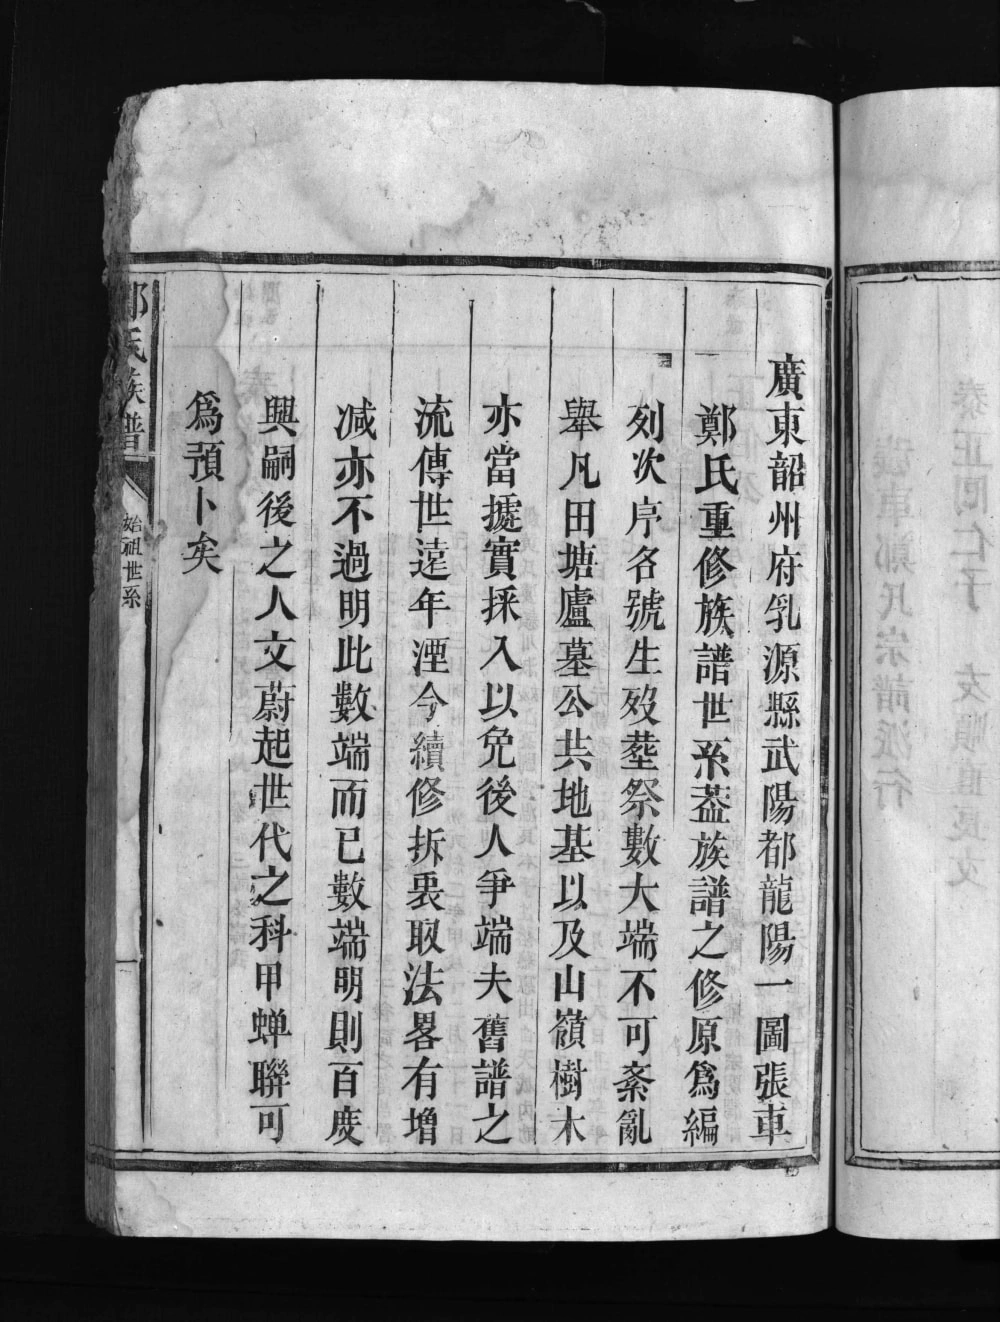 廣東韶州府乳源縣武陽都龍陽一圖張車
鄭氏重修族譜世系葢族譜之修原爲編
列次序名號生歿塟祭數大端不可紊亂
舉凡田塘廬墓公共地基以及山嶺樹木
亦當據實採入以免後人爭端夫舊譜之
流傳世遠年湮今續修拆裘取法畧有增
減亦不過明此數端而已數端明則百度
興嗣後之人文蔚起世代之科甲蝉聯可
爲預卜矣
鄭氏族譜
始祖世系
一